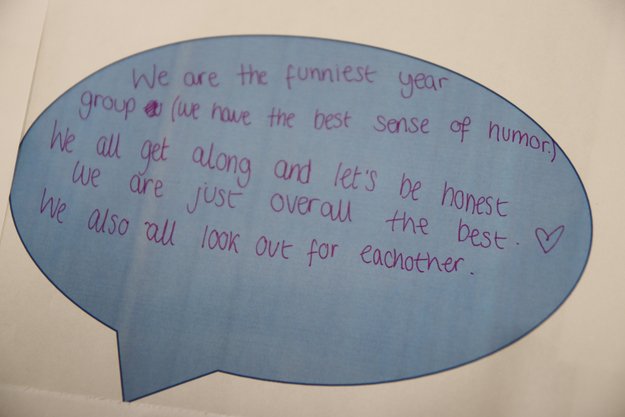 We are the funniest year
group (we have the best sense of humor.)
We all get along and let's be honest
we are just overall the best. ♡
We also all look out for eachother.